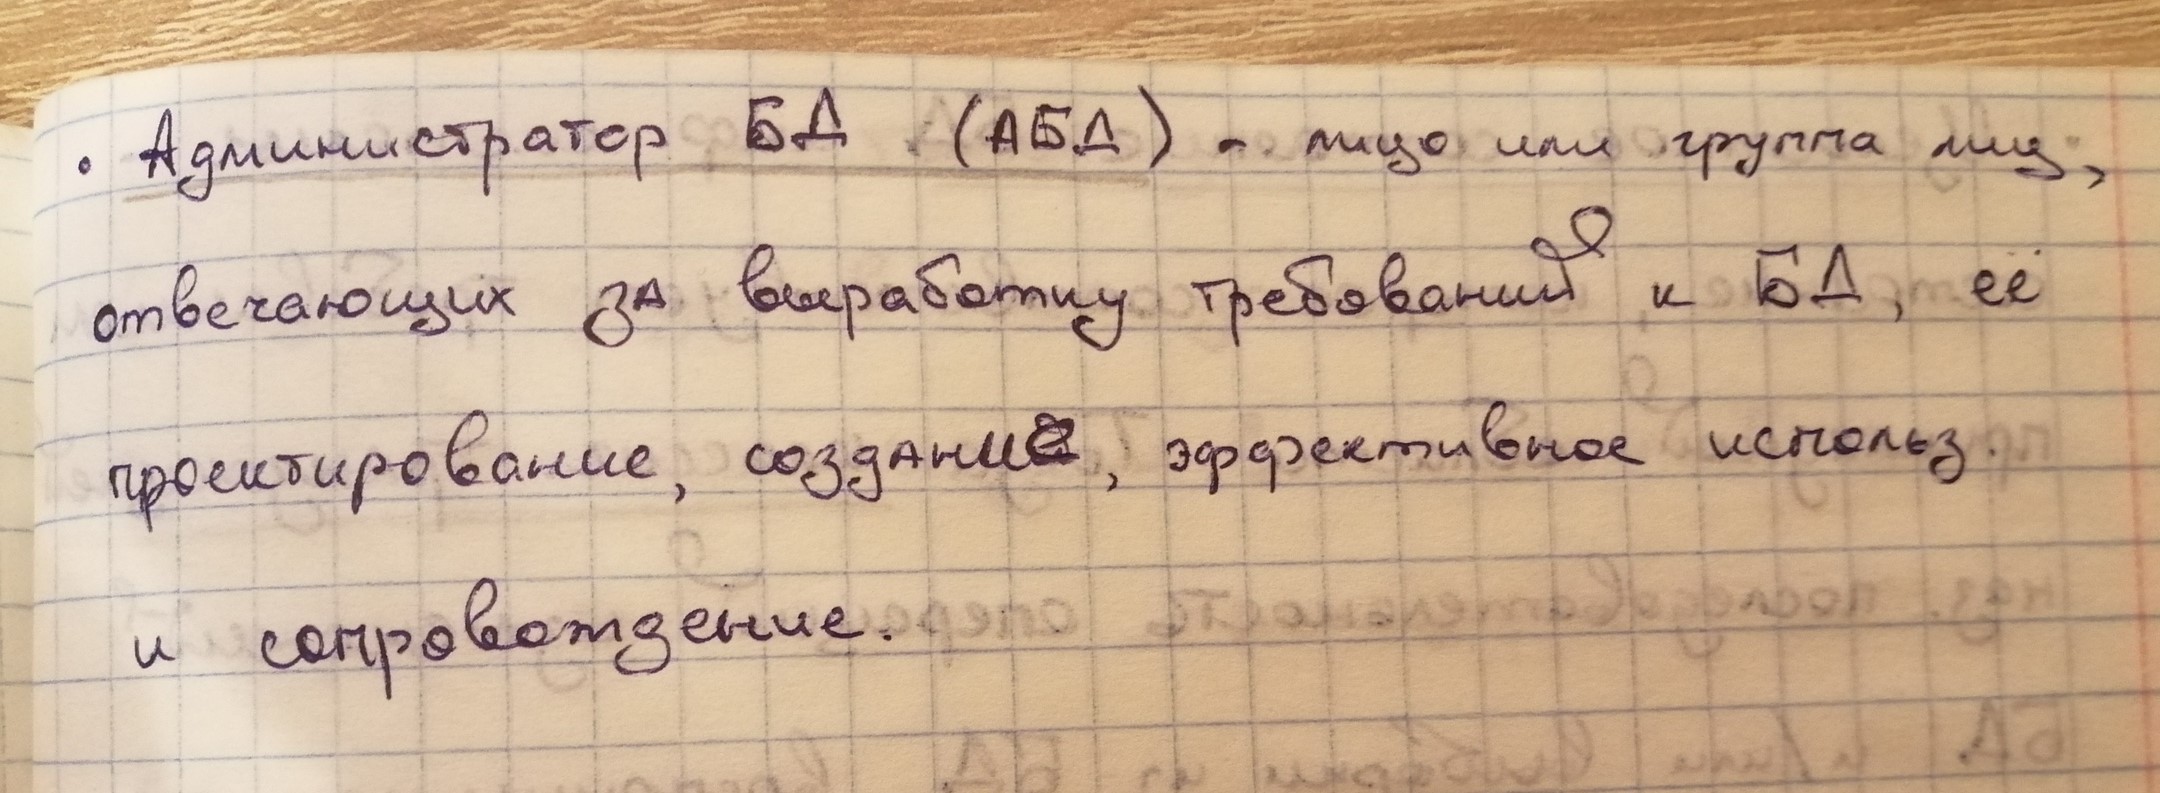 • Администратор БД (АБД) - лицо или группа лиц,
отвечающих за выработку требований к БД, её
проектирование, создание, эффективное использ.
и сопровождение.